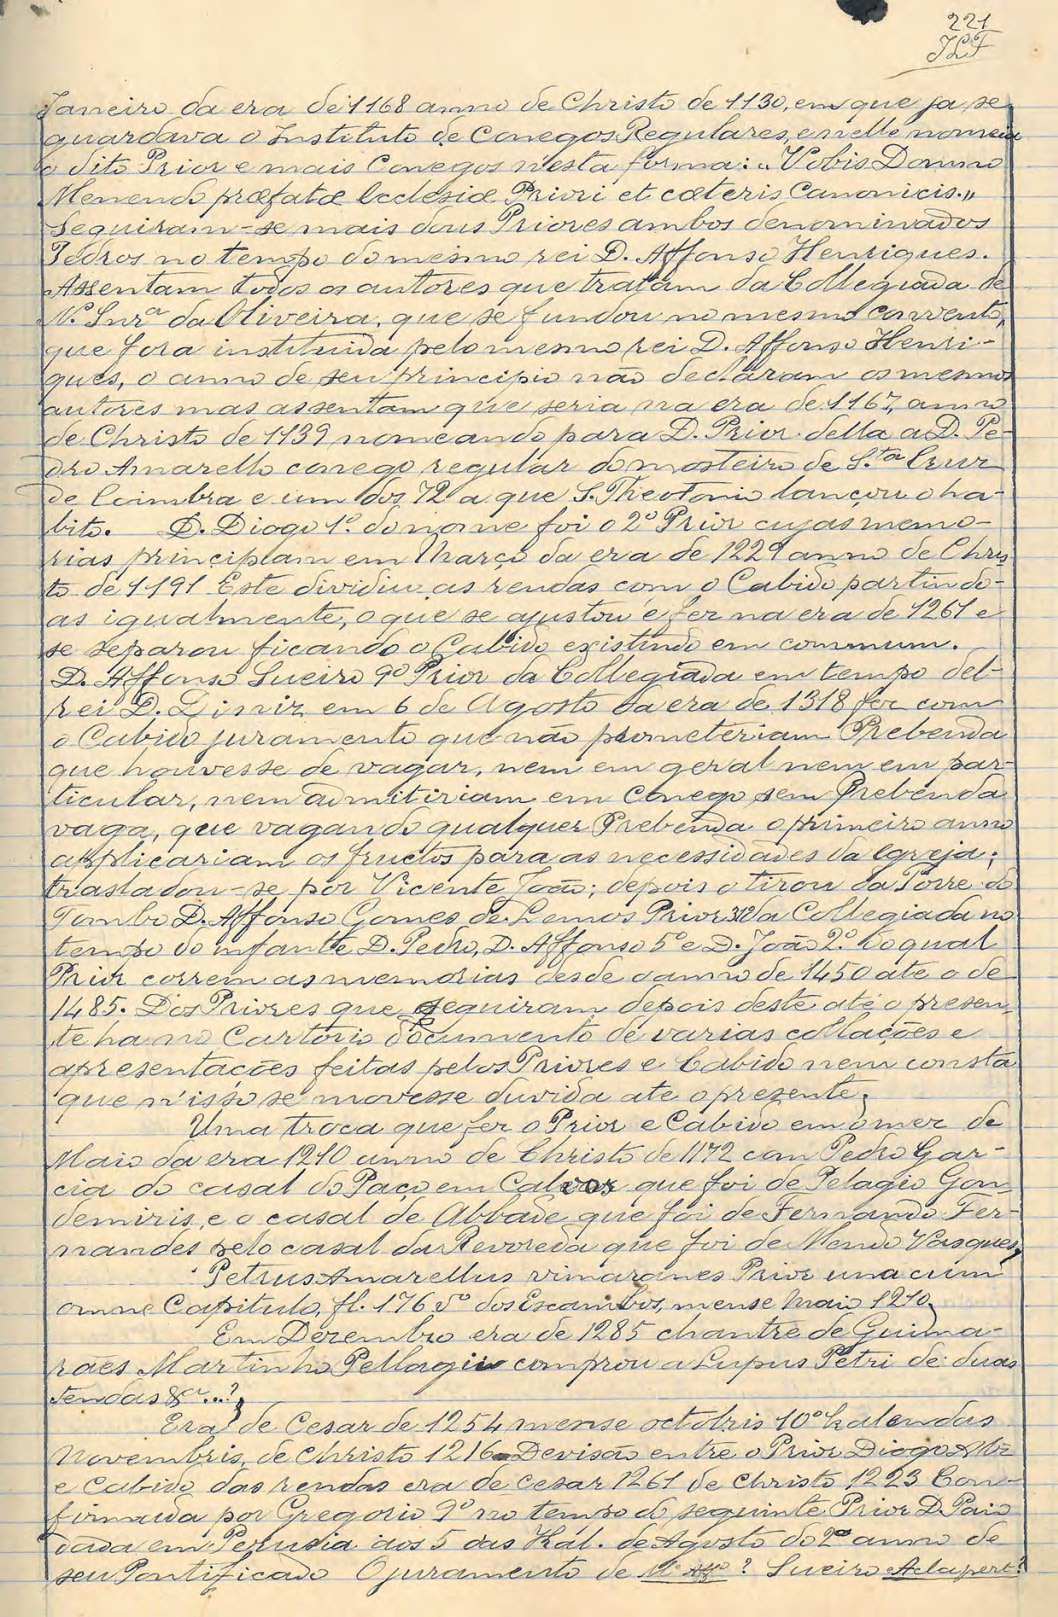 221
JLF
Janeiro da era de 1168 anno de Christo de 1130, em que ja se
guardava o Instituto de Conegos Regulares, e nelle nomeia
o dito Prior e mais Conegos nesta forma: „ Vobis Domno
Menendo præfatæ Ecclesiæ Priori et cæteris Canonicis. „
Seguiram-se mais dous Priores ambos denominados
Pedros no tempo do mesmo rei D. Affonso Henriques.
Assentam todos os autores que tratam da Collegiada de
N. Snrª da Oliveira, que se fundou no mesmo convento,
que fora instituida pelo mesmo rei D. Affonso Henri-
ques, o anno de seu principio não declaram os mesmos
autores mas assentam que seria na era de 1167, anno
de Christo de 1139 nomeando para D. Prior della a D. Pe-
dro Amarello conego regular do mosteiro de S.ta Cruz
de Coimbra e um dos 72 a que S. Theotonio lançou o ha-
bito. D. Diogo 1º do nome foi o 2º Prior cujas memo-
rias principiam em Março da era de 1229 anno de Chris
to de 1191 Este dividiu as rendas com o Cabido partindo-
as igualmente, o que se ajustou e fez na era de 1261 e
se separou ficando o Cabido existindo em commum.
D. Affonso Sueiro 9º Prior da Collegiada em tempo del-
rei D. Diniz em 6 de Agosto da era de 1318 fez com
o Cabido juramento que não prometeriam Prebenda
que houvesse de vagar, nem em geral nem em par-
ticular, nem admitiriam em Conego sem Prebenda
vaga, que vagando qualquer Prebenda o primeiro anno
applicariam os fructos para as necessidades da Egreja;
trasladou-se por Vicente João; depois o tirou da Torre do
Tombo D. Affonso Gomes de Lemos Prior 312 da Collegiada no
tempo do infante D. Pedro, D. Affonso 5º e D. João 2º. Do qual
Prior correm as memorias desde o anno de 1450 ate o de
1485. Dos Priores que seguiram depois deste até o presen-
te ha no Cartorio documento de varias collações e
apresentações feitas pelos Priores e Cabido nem consta
que n'isso se movesse duvida ate o presente.
Uma troca que fez o Prior e Cabido em o mez de
Maio da era 1210 anno de Christo de 1172 com Pedro Gar-
cia do casal do Paço em Calvos que foi de Pelagio Gon
demiris, e o casal de Abbade que foi de Fernando Fer-
nandes pelo casal da Revoreda que foi de Mendo Vasques,
Petrus Amarellus vimaranes Prior una cum
omne Capitulo, fl. 176 vº dos Escambos, mense Maio 1210.
Em Dezembro era de 1285 chantre de Guima-
rães Martinho Pellagii comprou a Lupus Petri de duas
tendas &ª...?
Era de Cesar de 1254 mense octobris 10º kalendas
Novembris, de Christo 1216 Devisão entre o Prior Diogo
e Cabido das rendas era de Cesar 1261 de Christo 1223 Con-
firmada por Gregorio 9º no tempo do seguinte Prior D. Paio
dada em Perusia aos 5 das Kal. de Agosto do 2º anno de
seu Pontificado O juramento de ? Sueiro